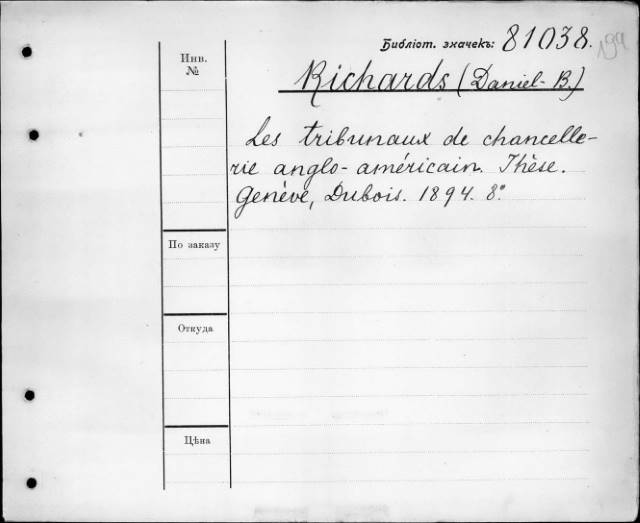 Библіот. значекъ: 81038.
199
Инв. №
Richards (Daniel-B.)
Les tribunaux de chancelle-
rie anglo-américain. Thèse.
Genève, Dubois. 1894. 8°
По заказу
Откуда
Цѣна